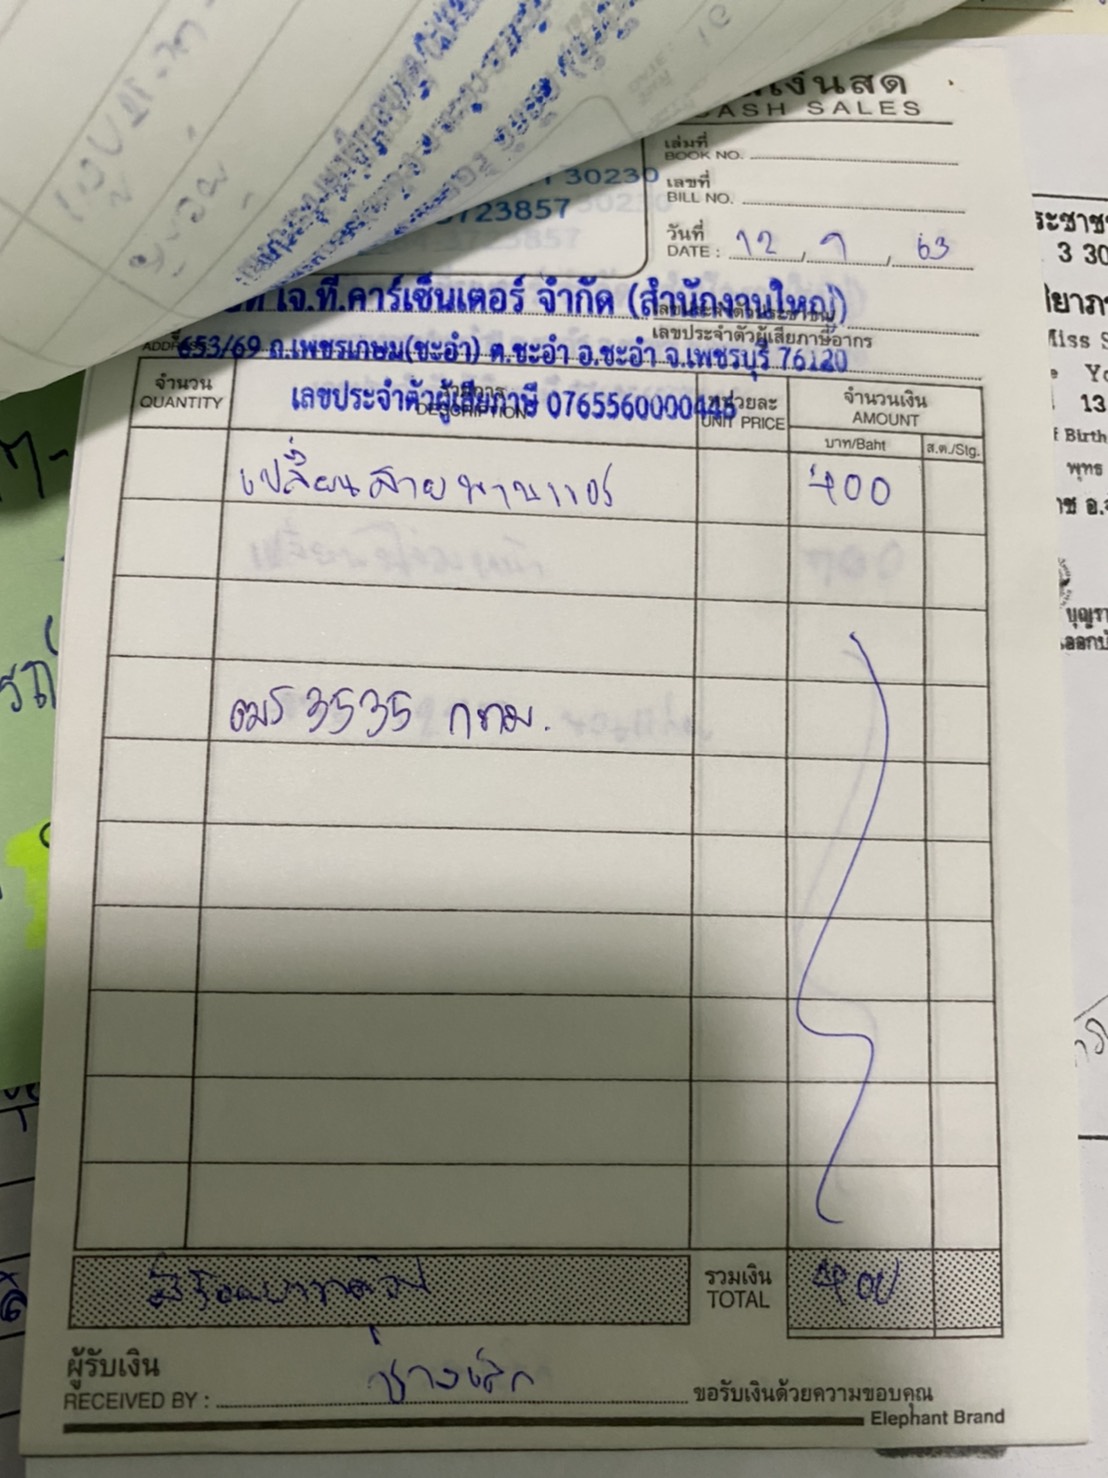 เงินสด
CASH SALES
เล่มที่
BOOK NO.
30230
เลขที่
BILL NO.
3723857
วันที่
DATE : 12 / 9 / 63
เจ.ที.คาร์เซ็นเตอร์ จำกัด (สำนักงานใหญ่)
เลขประจำตัวผู้เสียภาษีอากร
653/69 ถ.เพชรเกษม(ชะอำ) ต.ชะอำ อ.ชะอำ จ.เพชรบุรี 76120
เลขประจำตัวผู้เสียภาษี 0765560000445
จำนวน
QUANTITY
DESCRIPTION
หน่วยละ
UNIT PRICE
จำนวนเงิน
AMOUNT
บาท/Baht
ส.ต./Stg.
เปลี่ยนสายพานแอร์ 400
3535 กทม.
สี่ร้อยบาทถ้วน
รวมเงิน
TOTAL
400
ผู้รับเงิน
RECEIVED BY : ช่างเล็ก
ขอรับเงินด้วยความขอบคุณ
Elephant Brand
3 30
Miss S
13
f Birth
พุทธ